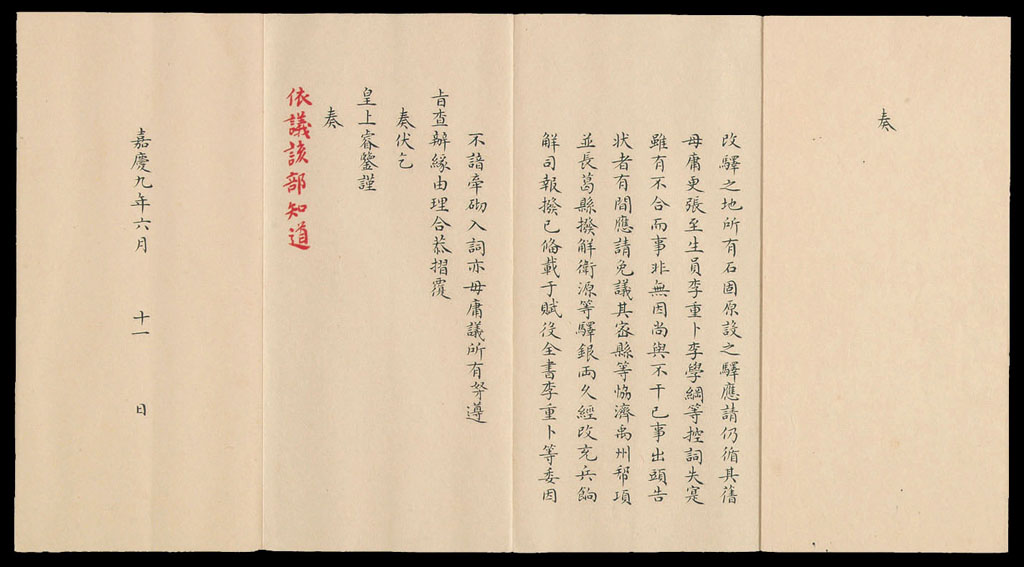 奏
改驛之地所有石固原設之驛應請仍循其舊
毋庸更張至生員李重卜李學綱等控詞失寔
雖有不合而事非無因尚與不干己事出頭告
狀者有間應請免議其密縣等協濟禹州帮項
並長葛縣撥解衛源等驛銀両久經改充兵餉
解司報撥已俻載于賦役全書李重卜等委因
不諳牽砌入詞亦毋庸議所有努遵
旨查辦緣由理合恭摺覆
奏伏乞
皇上睿鑒謹
奏
依議該部知道
嘉慶九年六月 十一 日